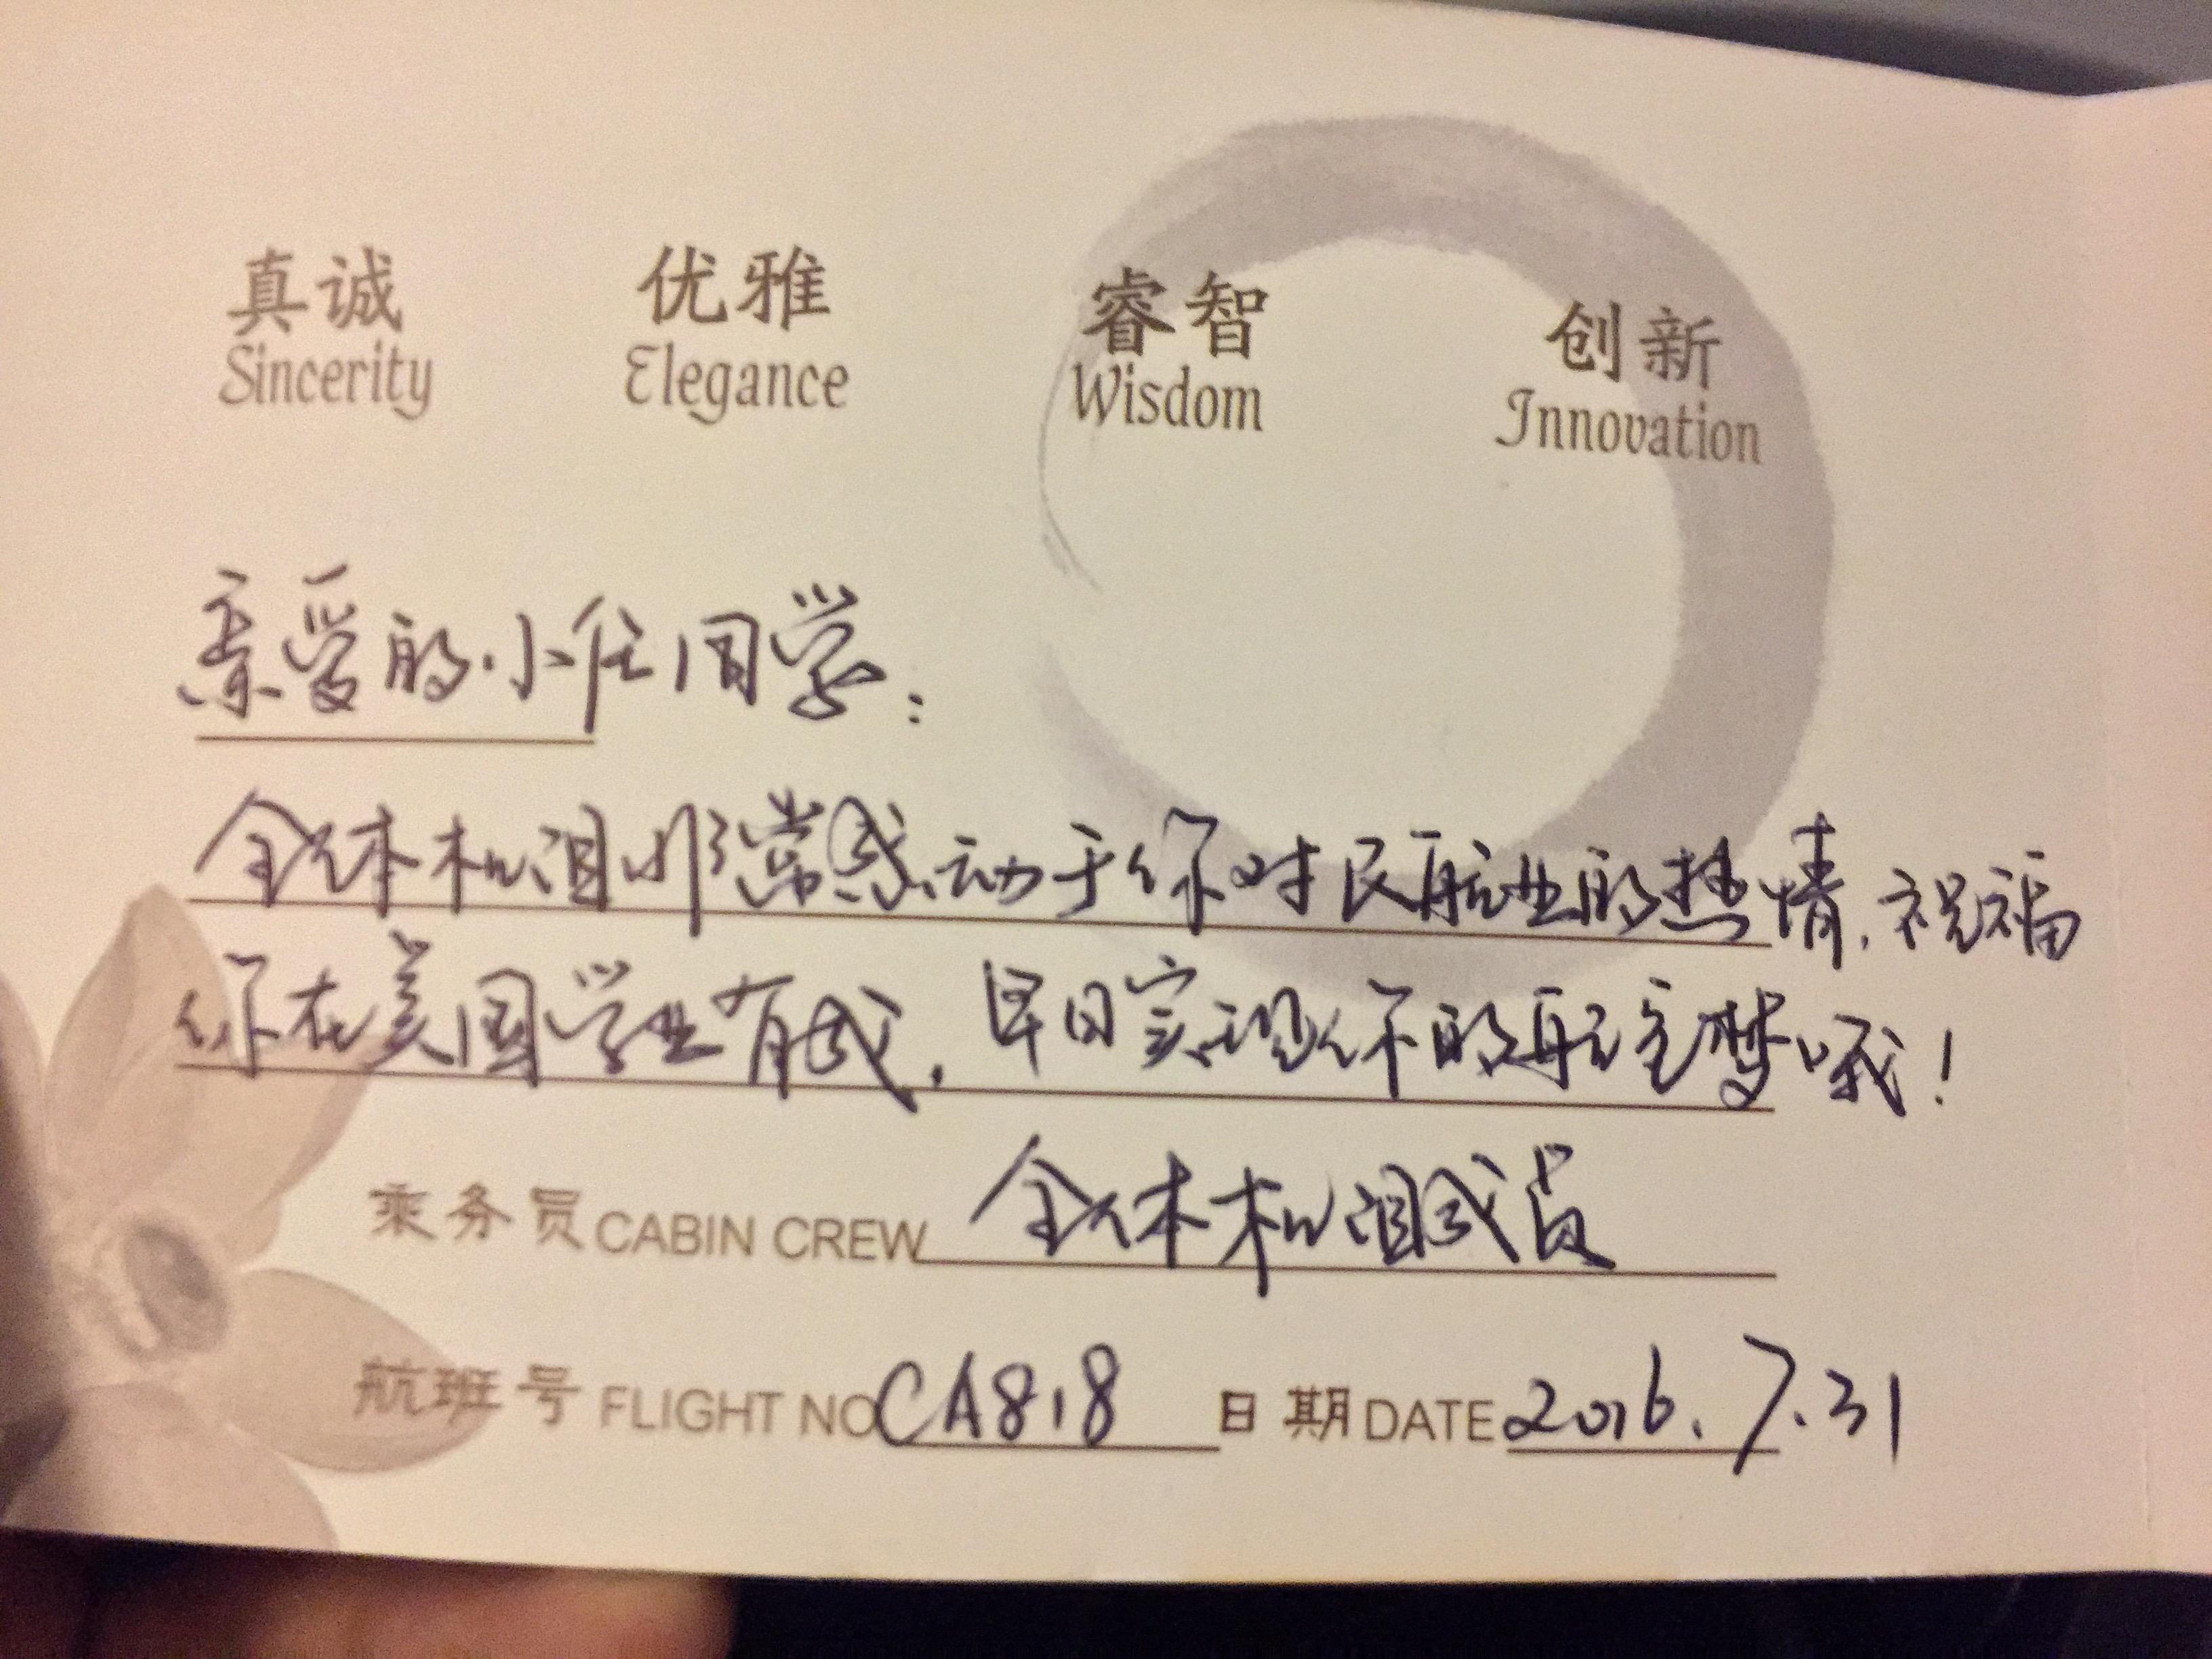 真诚 优雅 睿智 创新
Sincerity Elegance Wisdom Innovation
亲爱的小任同学：
全体机组非常感动于你对民航业的热情，祝福
你在美国学业有成，早日实现你的航空梦哦！
乘务员CABIN CREW 全体机组成员
航班号 FLIGHT NO CA818 日期DATE 2016.7.31